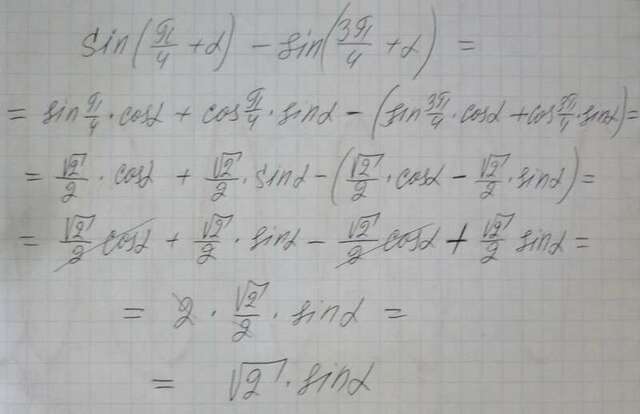 sin(π/4 + α) - sin(3π/4 + α) =
= sin π/4 · cosα + cos π/4 · sinα - (sin 3π/4 · cosα + cos 3π/4 · sinα) =
= √2/2 · cosα + √2/2 · sinα - (√2/2 · cosα - √2/2 · sinα) =
= √2/2 cosα + √2/2 · sinα - √2/2 cosα + √2/2 sinα =
= 2 · √2/2 · sinα =
= √2 · sinα